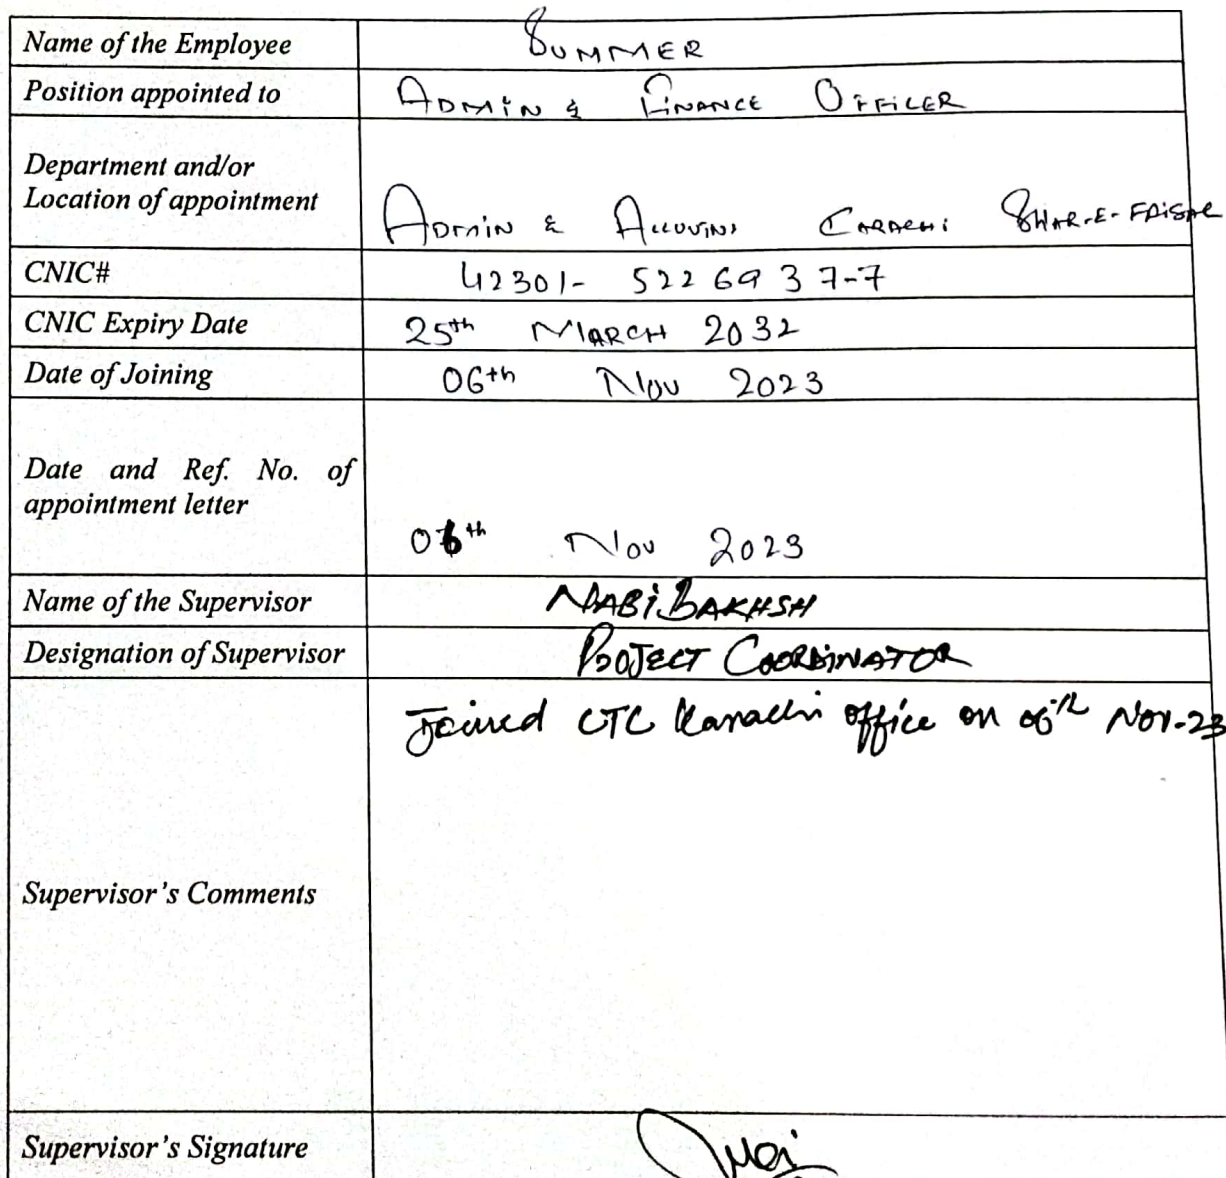 Name of the Employee SUMMER
Position appointed to ADMIN & FINANCE OFFICER
Department and/or
Location of appointment ADMIN & KARACHI SHAR-E-FAISAL
CNIC# 42301-5226937-7
CNIC Expiry Date 25th MARCH 2032
Date of Joining 06th Nov 2023
Date and Ref. No. of
appointment letter
06th Nov 2023
Name of the Supervisor NABI BAKHSH
Designation of Supervisor PROJECT COORDINATOR
Joined CTC Karachi office on 06th Nov-23
Supervisor's Comments
Supervisor's Signature